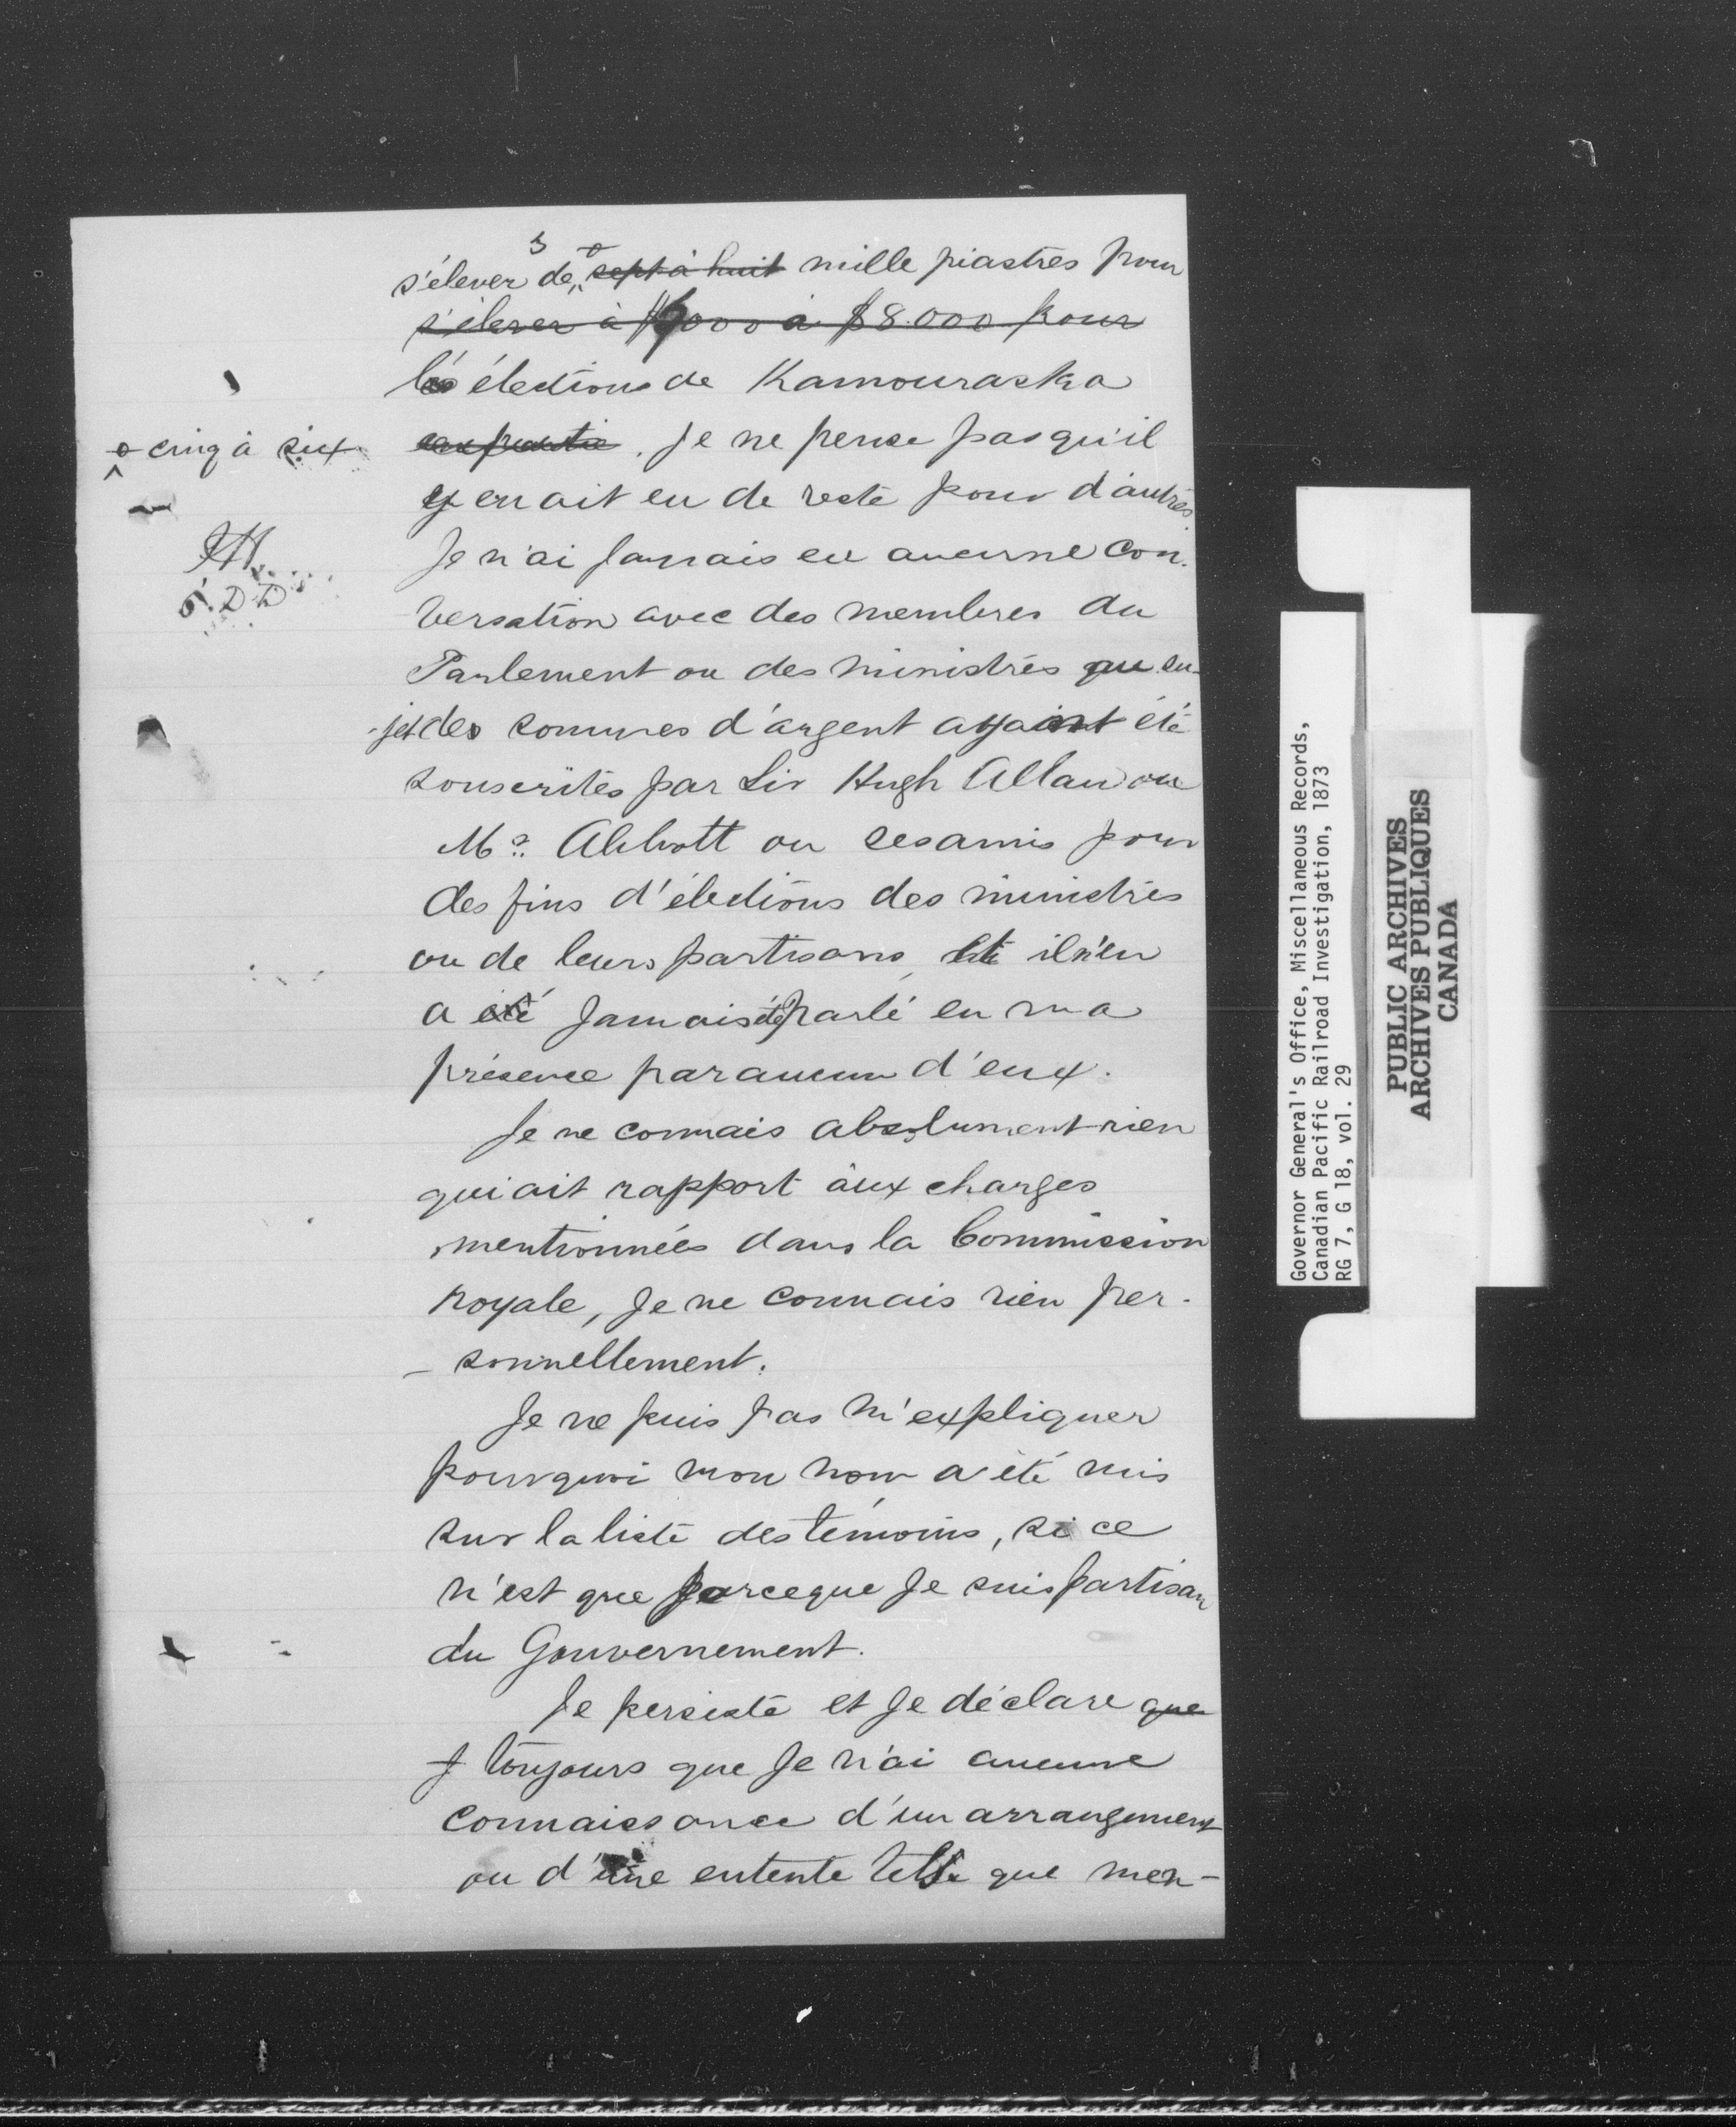 s'élever de sept à huit mille piastres pour
s'élever à $7000 à $8.000 pour
les élections de Kamouraska
o cinq à six
en partie. Je ne pense pas qu'il
y en ait eu de reste pour d'autres.
Je n'ai Jamais eu aucune con-
versation avec des membres du
Parlement ou des ministres au su-
-jet des sommes d'argent ayant été
souscrites par Sir Hugh Allan ou
Mr. Abbott ou ses amis pour
des fins d'élections des ministres
ou de leurs partisans, et il n'en
a été Jamais été parlé en ma
présence par aucun d'eux.
Je ne connais absolument rien
qui ait rapport aux charges
mentionnées dans la Commission
royale, Je ne connais rien per-
- sonnellement.
Je ne puis pas m'expliquer
pourquoi mon nom a été mis
sur la liste des témoins, si ce
n'est que parceque Je suis partisan
du Gouvernement.
Je persiste et Je déclare que
toujours que Je n'ai aucune
connaissance d'un arrangement
ou d'une entente telle que men-
Governor General's Office, Miscellaneous Records,
Canadian Pacific Railroad Investigation, 1873
RG 7, G 18, vol. 29
PUBLIC ARCHIVES
ARCHIVES PUBLIQUES
CANADA